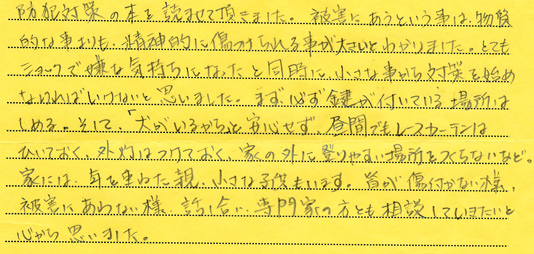 防犯対策の本を読ませて頂きました。被害にあうという事は、物質
的な事よりも、精神的に傷つけられる事が大きいとわかりました。とても
ショックで嫌な気持ちになったと同時に、小さな事から対策を始め
なければいけないと思いました。まず必ず鍵が付いている場所は
しめる。そして、「犬がいるから」と安心せず、昼間でもレースカーテンは
ひいておく、外灯はつけておく、家の外に登りやすい場所をつくらないなど。
家には、年を重ねた親、小さな子供もいます。皆が傷付かない様、
被害にあわない様、話し合い、専門家の方とも相談していきたいと
心から思いました。